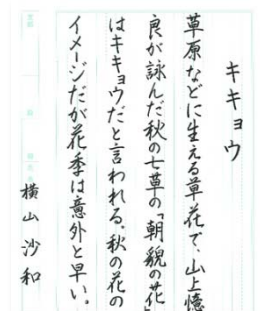 キキョウ
草原などに生える草花で、山上憶
良が詠んだ秋の七草の「朝貌の花」
はキキョウだと言われる。秋の花の
イメージだが花季は意外と早い。
横山沙和